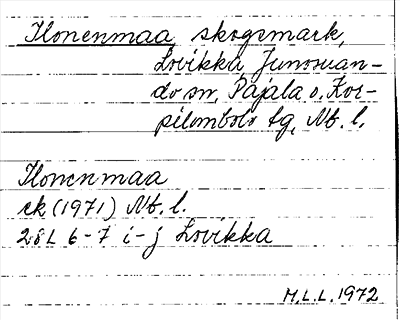 Ilonenmaa, skogsmark,
Lovikka, Junosuan-
do sn, Pajala o. Kor-
pilombolo tg, Nb. l.
Ilonenmaa
ek (1971) Nb. l.
28L 6-7 i-j Lovikka
M.L.L. 1972